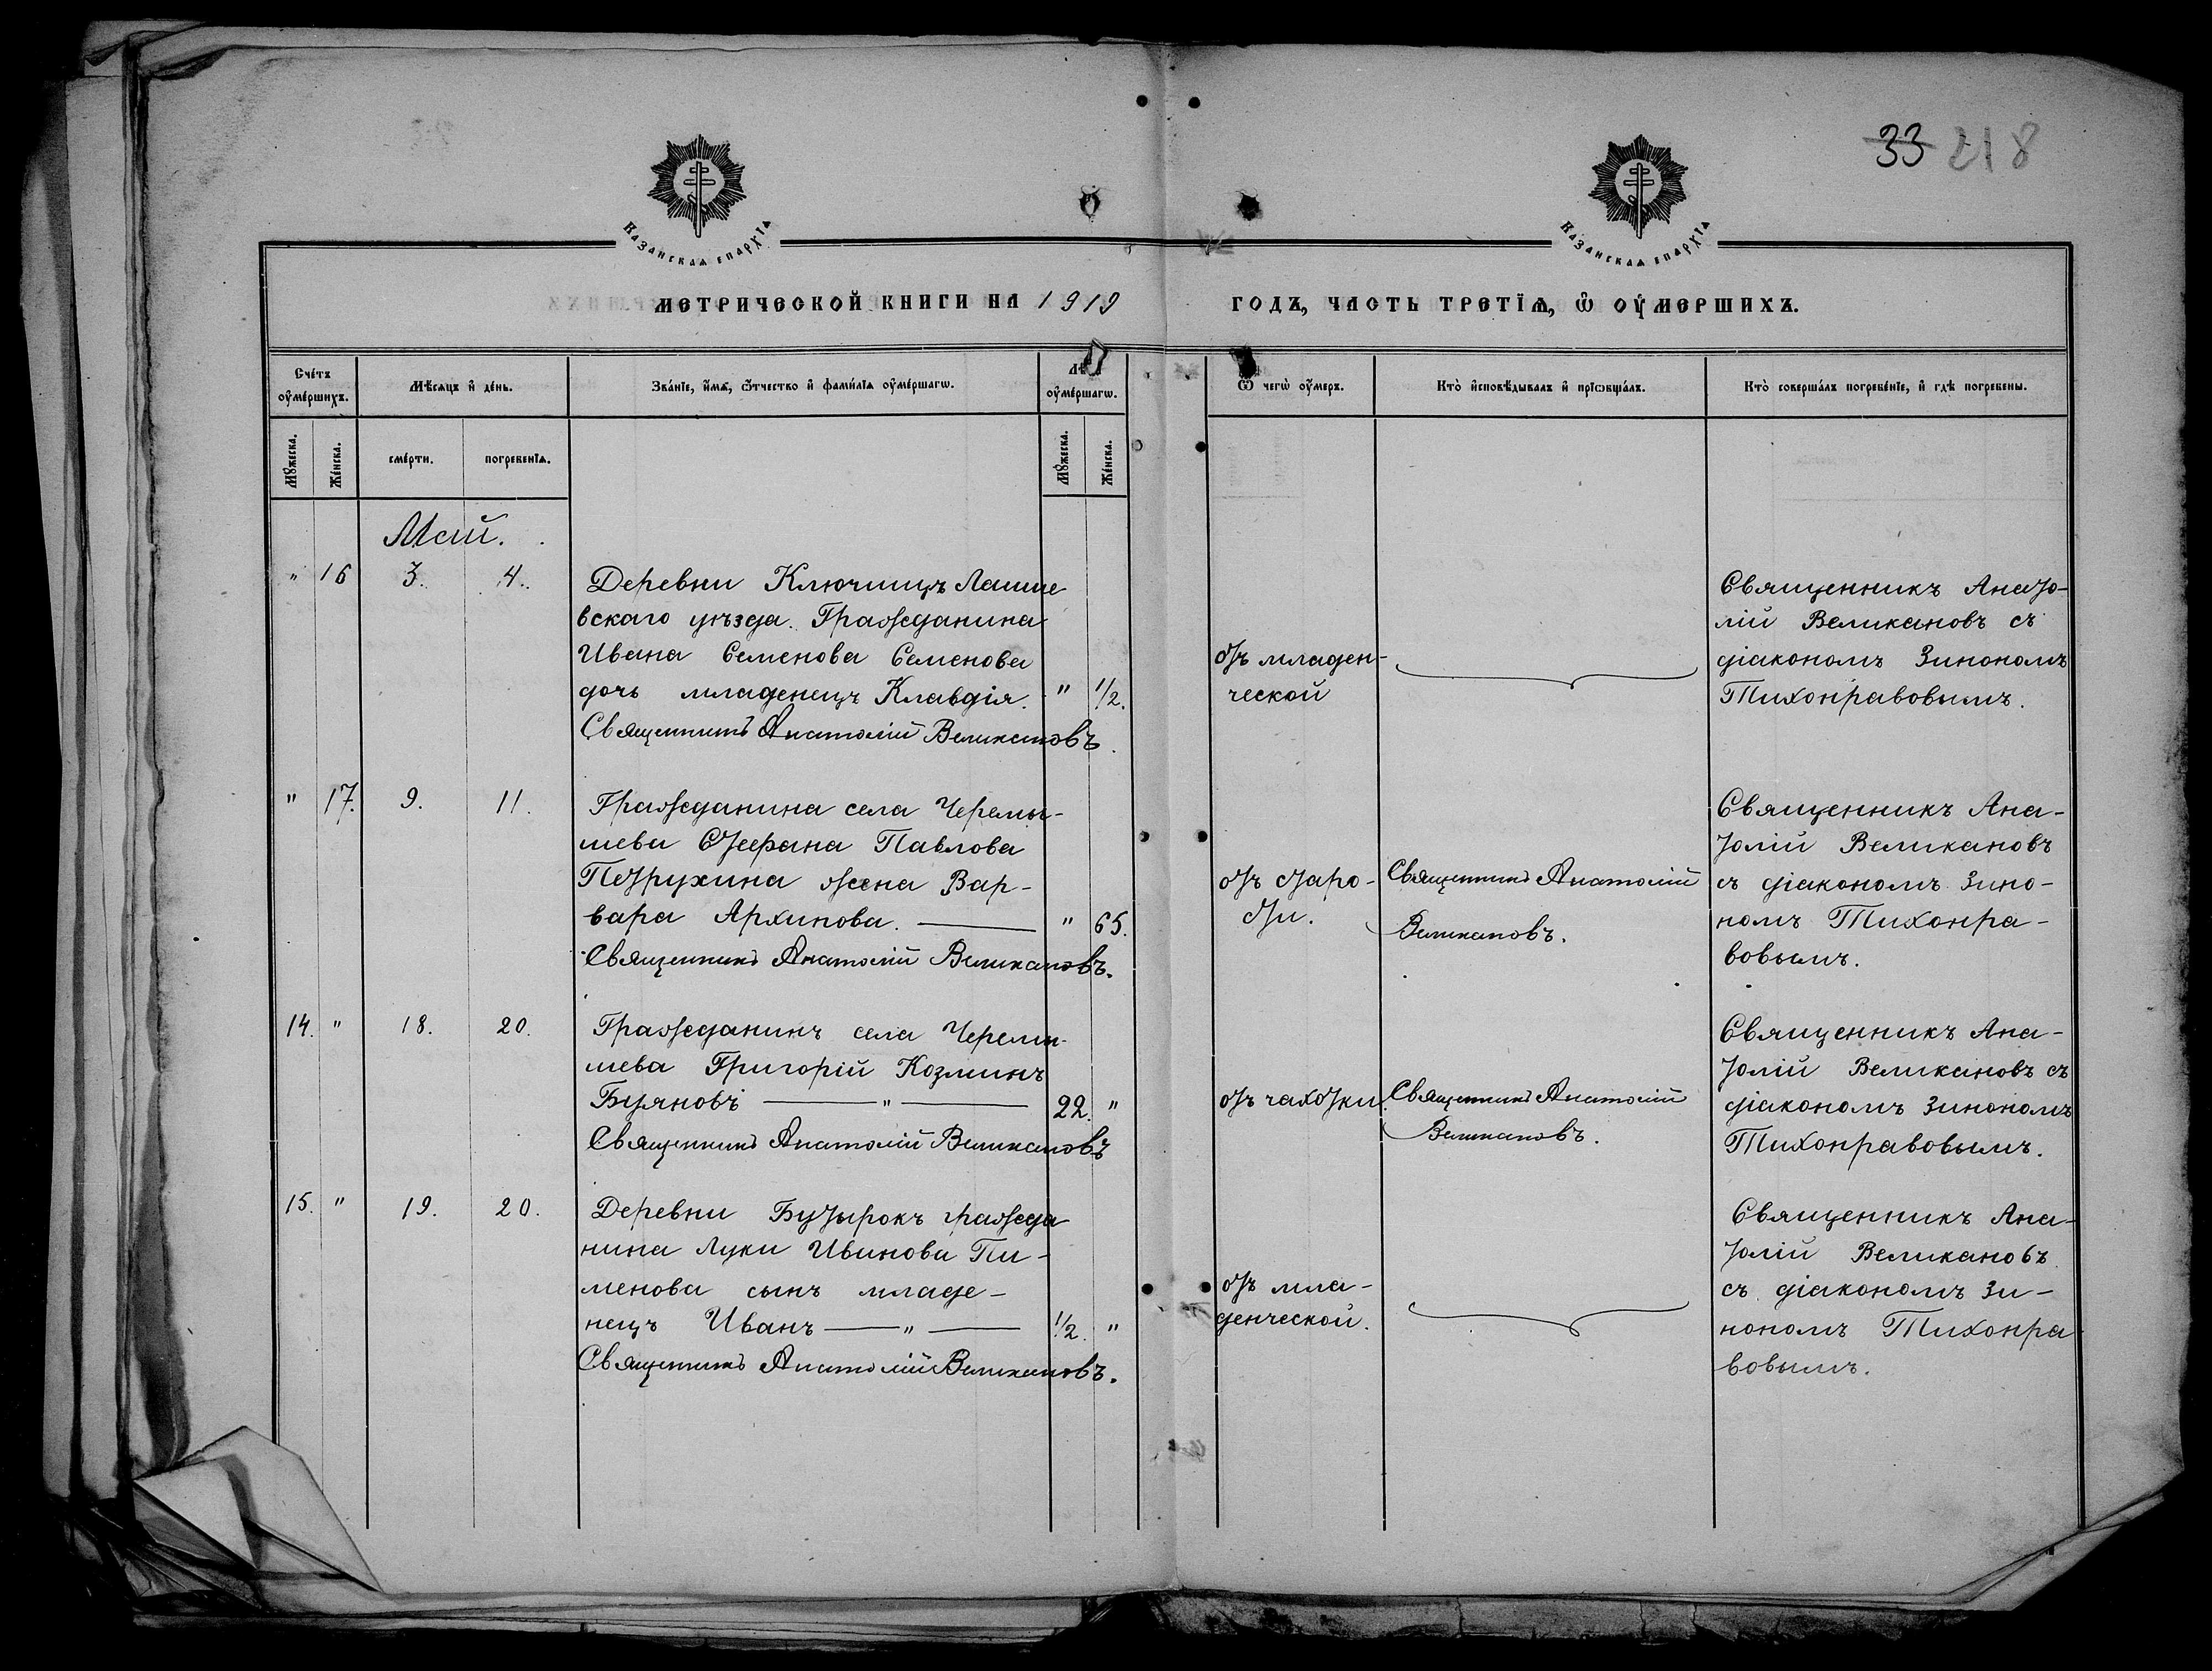 33 218
КАЗАНСКАѦ ЕПАРХІѦ
КАЗАНСКАѦ ЕПАРХІѦ
МЕТРИЧЕСКОЙ КНИГИ НА 1919
ГОДЪ, ЧАСТЬ ТРЕТІѦ, Ѡ ОУМЕРШИХЪ.
Счетъ оумершихъ.
Мѣсяцъ и день.
Званіе, имѧ, ѿчество и фамиліѧ оумершагѡ.
оумершагѡ.
Ѿ чегѡ оумеръ.
Кто исповѣдывалъ и пріѡбщалъ.
Кто совершалъ погребеніе, и гдѣ погребены.
Мꙋжеска.
Женска.
смерти.
погребеніѧ.
Мꙋжеска.
Женска.
Май.
" 16 3. 4.
Деревни Ключищъ Лаише
вскаго уѣзда. Гражданина
Ивана Семенова Семенова
дочь младенецъ Клавдія. " 1/2.
Священникъ Анатолій Великановъ.
отъ младен-
ческой
Священникъ Анато-
лій Великановъ съ
діакономъ Зинономъ
Тихонравовымъ.
" 17. 9. 11.
Гражданина села Черемы-
шева Стефана Павлова
Петрухина жена Вар-
вара Архипова. " 65.
Священникъ Анатолій Великановъ.
отъ старо-
сти.
Священникъ Анатолій
Великановъ.
Священникъ Ана-
толій Великановъ
съ діакономъ Зино-
номъ Тихонра-
вовымъ.
14. " 18. 20.
Гражданинъ села Черемы-
шева Григорій Козминъ
Буяновъ " 22. "
Священникъ Анатолій Великановъ
отъ чахотки.
Священникъ Анатолій
Великановъ.
Священникъ Ана-
толій Великановъ съ
діакономъ Зинономъ
Тихонравовымъ.
15. " 19. 20.
Деревни Бутырокъ гражда
нина Луки Иванова Пи-
менова сынъ младе-
нецъ Иванъ " 1/2. "
Священникъ Анатолій Великановъ.
отъ мла-
денческой.
Священникъ Ана-
толій Великановъ
съ діакономъ Зи-
нономъ Тихонра
вовымъ.